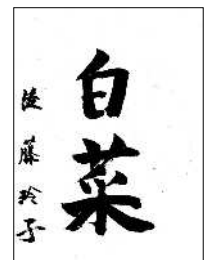 白菜
後藤玲子